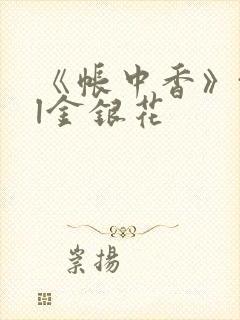 《帐中香》
|金银花
崇扬